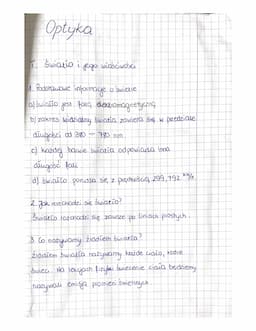 Optyka
1. Światło i jego właściwości
1. Podstawowe informacje o świetle
a) światło jest falą elektromagnetyczną
b) zakres widzialny światła zawiera się w przedziale
długości od 380 – 780 nm.
c) każdej barwie światła odpowiada inna
długość fali
d) światło porusza się z prędkością 299,792 km/s
2. Jak rozchodzi się światło?
Światło rozchodzi się zawsze po liniach prostych.
3. Co nazywamy źródłem światła?
Źródłem światła nazywamy każde ciało, które
świeci. Na lekcjach fizyki świecenie ciała będziemy
nazywali emisją promieni świetlnych